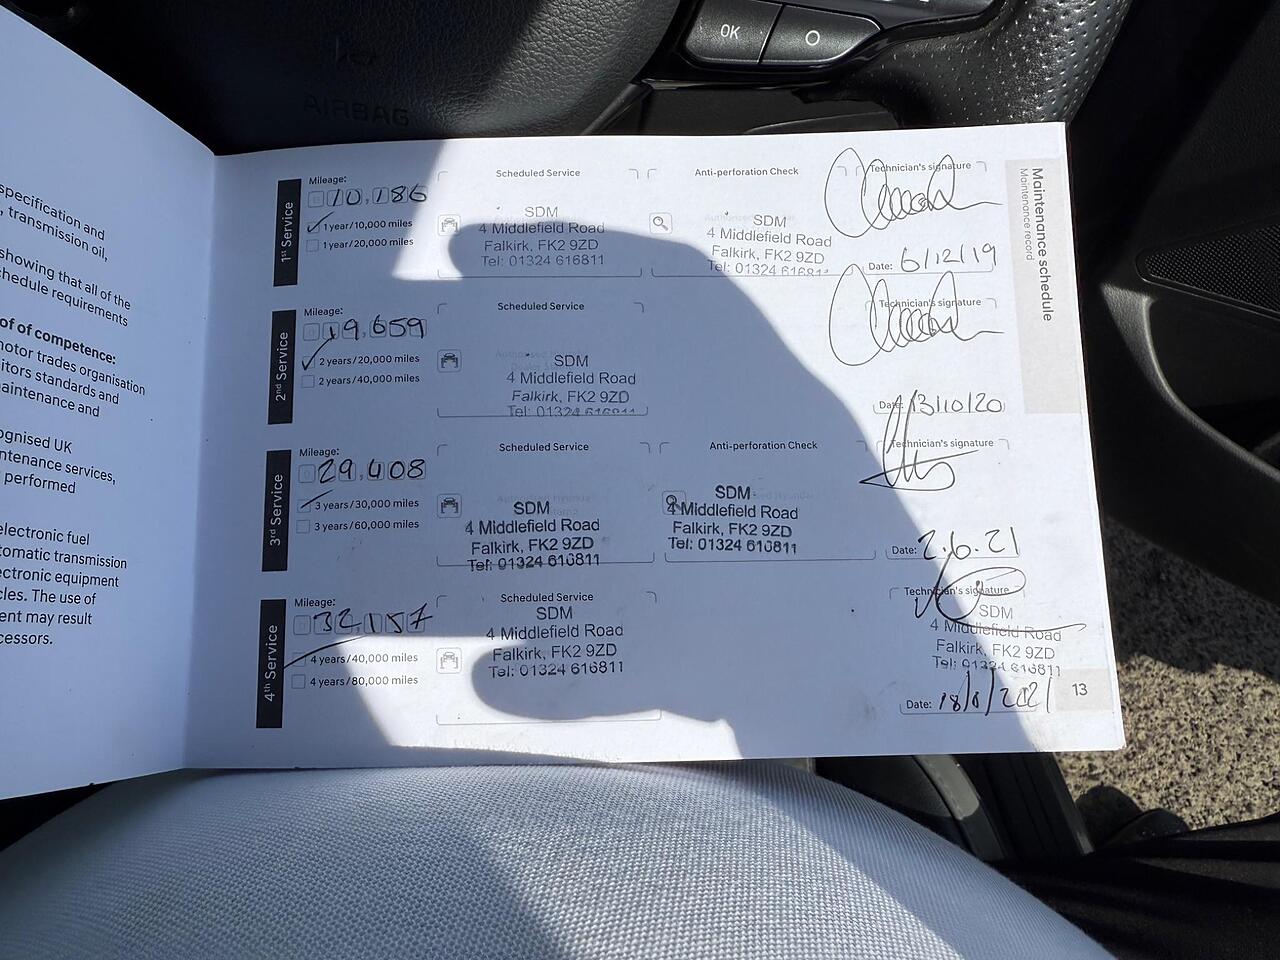 OK
AIRBAG
specification and
, transmission oil,
showing that all of the
hedule requirements
of of competence:
motor trades organisation
itors standards and
aintenance and
ognised UK
ntenance services,
performed
electronic fuel
tomatic transmission
ectronic equipment
cles. The use of
ent may result
cessors.
Maintenance schedule
Maintenance record
1st Service
Mileage:
10,186
1 year/10,000 miles
1 year/20,000 miles
Scheduled Service
SDM
4 Middlefield Road
Falkirk, FK2 9ZD
Tel: 01324 616811
Anti-perforation Check
SDM
4 Middlefield Road
Falkirk, FK2 9ZD
Tel: 01324 616811
Technician's signature
Date: 6/12/19
2nd Service
Mileage:
19,659
2 years/20,000 miles
2 years/40,000 miles
Scheduled Service
SDM
4 Middlefield Road
Falkirk, FK2 9ZD
Tel: 01324 616811
Technician's signature
Date: 13/10/20
3rd Service
Mileage:
29,408
3 years/30,000 miles
3 years/60,000 miles
Scheduled Service
SDM
4 Middlefield Road
Falkirk, FK2 9ZD
Tel: 01324 616811
Anti-perforation Check
SDM
4 Middlefield Road
Falkirk, FK2 9ZD
Tel: 01324 616811
Technician's signature
Date: 2.6.21
4th Service
Mileage:
32157
4 years/40,000 miles
4 years/80,000 miles
Scheduled Service
SDM
4 Middlefield Road
Falkirk, FK2 9ZD
Tel: 01324 616811
Technician's signature
SDM
4 Middlefield Road
Falkirk, FK2 9ZD
Tel: 01324 616811
Date:
13